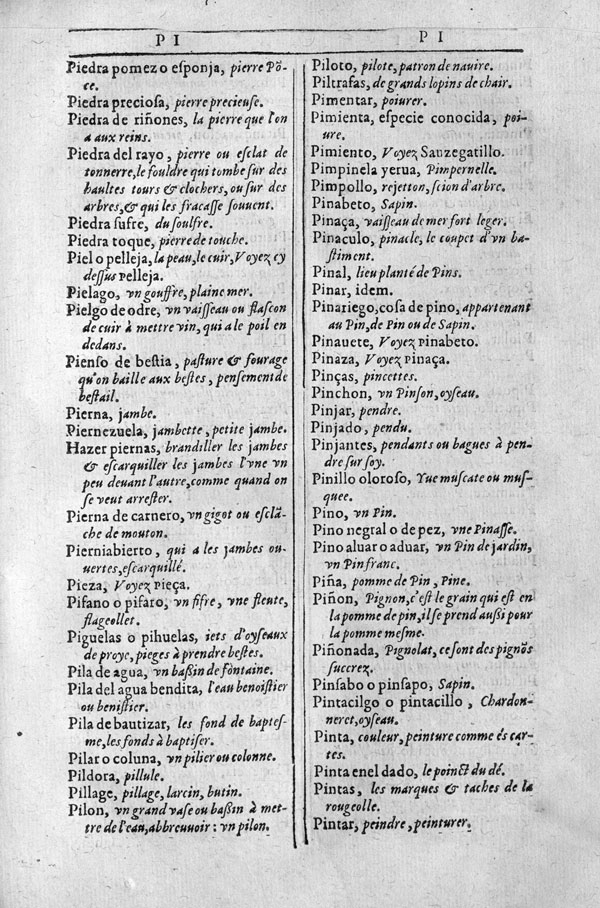 PI
Piedra pomez o esponja, pierre Põ-
ce.
Piedra preciosa, pierre precieuse.
Piedra de riñones, la pierre que l'on
a aux reins.
Piedra del rayo, pierre ou esclat de
tonnerre, le fouldre qui tombe sur des
haultes tours & clochers, ou sur des
arbres, & qui les fracasse souuent.
Piedra sufre, du soulfre.
Piedra toque, pierre de touche.
Piel o pelleja, la peau, le cuir, Voyez cy
dessus Pelleja.
Pielago, vn gouffre, plaine mer.
Pielgo de odre, vn vaisseau ou flascon
de cuir à mettre vin, qui a le poil en
dedans.
Pienso de bestia, pasture & fourage
qu'on baille aux bestes, pensement de
bestail.
Pierna, jambe.
Piernezuela, jambette, petite jambe.
Hazer piernas, brandiller les jambes
& escarquiller les jambes l'vne vn
peu deuant l'autre, comme quand on
se veut arrester.
Pierna de carnero, vn gigot ou esclã-
che de mouton.
Pierniabierto, qui a les jambes ou-
uertes, escarquillé.
Pieza, Voyez Pieça.
Pifano o pifaro, vn fifre, vne fleute,
flageollet.
Piguelas o pihuelas, iets d'oyseaux
de proye, pieges à prendre bestes.
Pila de agua, vn bassin de fontaine.
Pila del agua bendita, l'eau benoistier
ou benistier.
Pila de bautizar, les fond de baptes-
me, les fonds à baptiser.
Pilar o coluna, vn pilier ou colonne.
Pildora, pillule.
Pillage, pillage, larcin, butin.
Pilon, vn grand vase ou bassin à met-
tre de l'eau, abbreuuoir : vn pilon.
PI
Piloto, pilote, patron de nauire.
Piltrafas, de grands lopins de chair.
Pimentar, poiurer.
Pimienta, especie conocida, poi-
ure.
Pimiento, Voyez Sauzegatillo.
Pimpinela yerua, Pimpernelle.
Pimpollo, rejetton, scion d'arbre.
Pinabeto, Sapin.
Pinaça, vaisseau de mer fort leger.
Pinaculo, pinacle, le coupet d'vn ba-
stiment.
Pinal, lieu planté de Pins.
Pinar, idem.
Pinariego, cosa de pino, appartenant
au Pin, de Pin ou de Sapin.
Pinauete, Voyez Pinabeto.
Pinaza, Voyez Pinaça.
Pinças, pincettes.
Pinchon, vn Pinson, oyseau.
Pinjar, pendre.
Pinjado, pendu.
Pinjantes, pendants ou bagues à pen-
dre sur soy.
Pinillo oloroso, Yue muscate ou mus-
quee.
Pino, vn Pin.
Pino negral o de pez, vne Pinasse.
Pino aluar o aduar, vn Pin de jardin,
vn Pin franc.
Piña, pomme de Pin, Pine.
Piñon, Pignon, c'est le grain qui est en
la pomme de pin, il se prend aussi pour
la pomme mesme.
Piñonada, Pignolat, ce sont des pignõs
succrez.
Pinsabo o pinsapo, Sapin.
Pintacilgo o pintacillo, Chardon-
neret, oyseau.
Pinta, couleur, peinture comme és car-
tes.
Pinta en el dado, le poinct du dé.
Pintas, les marques & taches de la
rougeolle.
Pintar, peindre, peinturer.